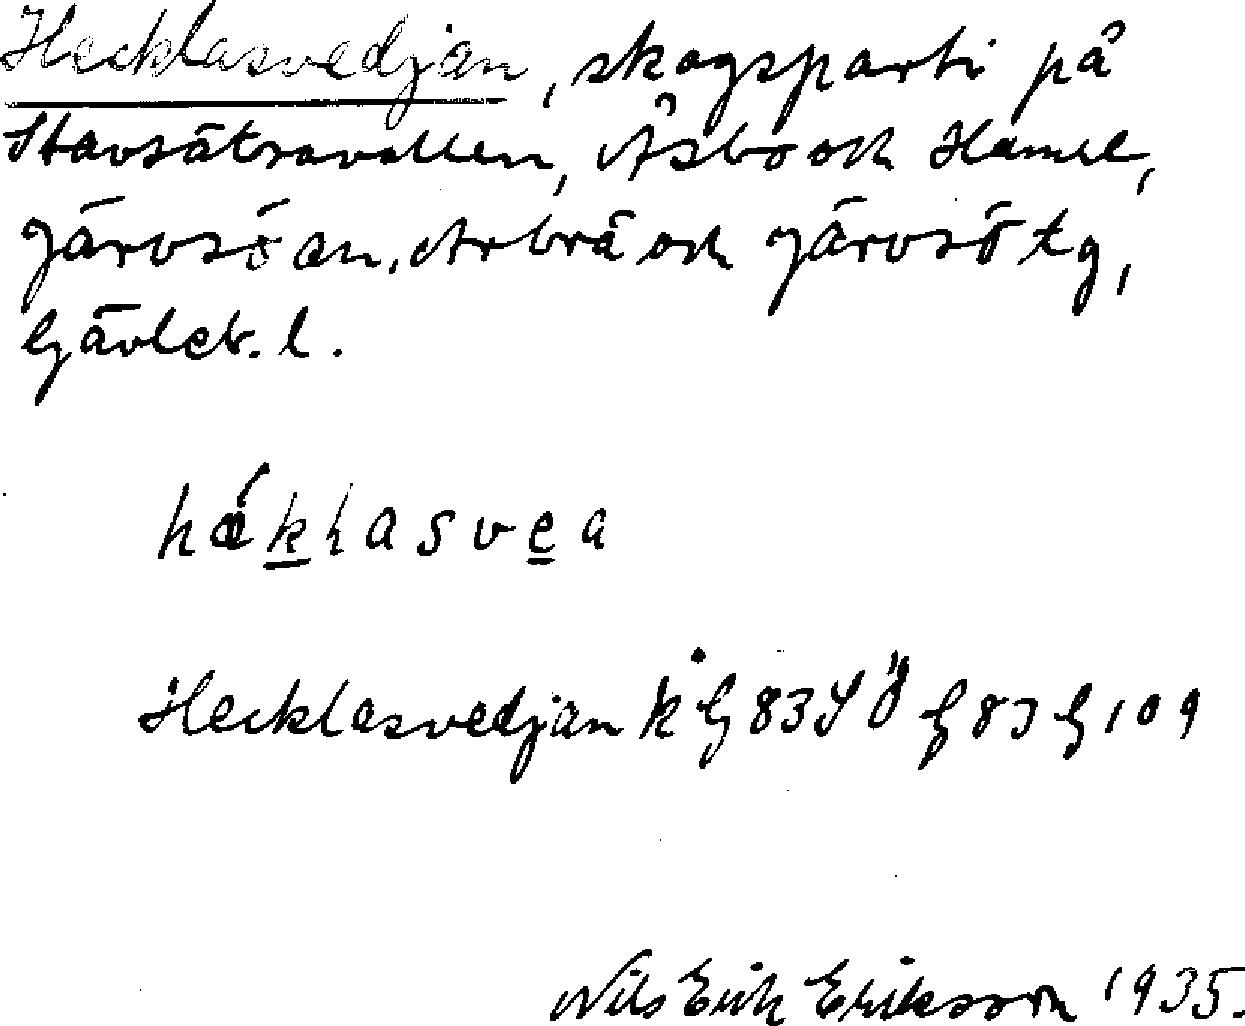 Hecklasvedjan, skogsparti på
Stavsätravallen, Åsbo och Hamre,
Järvsö an, Arbrå och Järvsö tg,
Gävleb. l.
håklasvea
Hecklasvedjan k G 83 SÖ G 83 G 109
Nils Erik Eriksson 1935.